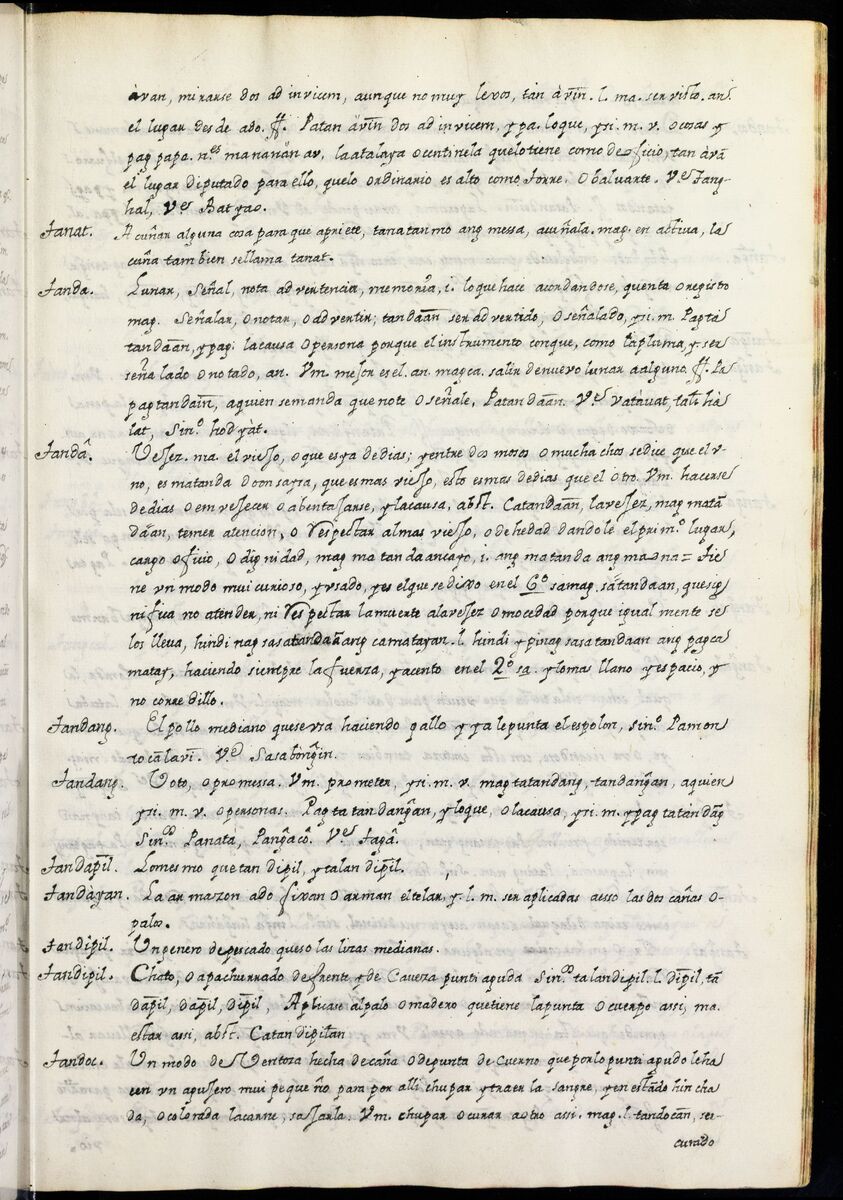 àvan, mirarse dos ad invicem, aunque no muy lexos, tan àvin̄. l. ma. ser visto. an.
el lugar desde ado. ꝟ. Patan àvin̄ dos ad invicem, y pa. loque, y si. m. v. o cosas y
pag papa. n.es mananãn av, la atalaya o centinela quelo tiene como de oficio, tan àvã
el lugar diputado para ello, quelo ordinario es alto como torre. o baluarte. Ve Tang-
hal, Ve Batyao.
Tanat. Acuñar alguna cosa para que apriete, tanatan mo ang messa, acuñala. mag. en activa, la
cuña tambien se llama tanat.
Tanda. Lunar, Señal, nota advertencia, memoria, i. lo que hace acordandose, quenta o registo
mag. Señalar, o notar, o advertir; tandaãn ser advertido, o señalado, y si. m. Pagta
tandaãn, y pag: la causa o persona porque el instrumento conque, como la pluma, y ser
señalado o notado, an. Vm. mejor es el. an. magca. salir de nuevo lunar a alguno. Pa
pagtandain̄, a quien se manda que note o señale, Patandaãn. Ve vatàvat, tali hà
lat, Sin.º hodyat.
Tandâ. Vejez. ma. el viejo, o que es ya de dias; y entre dos mosos o muchachos se dice que el v-
no, es matanda doon sa yia, que es mas viejo, esto es mas de dias que el otro. Vm. hacerse
de dias o envejecer o abentajarse, y la causa, abst. Catandaãn, la vejez, mag matã
dàan, tener atencion, o Respectar al mas viejo, o de hedad dandole el prim.º lugar,
cargo oficio, o dignidad, mag matanda ancayo, i. ang matanda ang mauna = Tie
ne vn modo mui curioso, y vsado, y es el que se dixo en el 6.º sa mag. sàtandaan, que sig
nifica no atender, ni Respectar la muerte a la vejez o mocedad porque igual mente se
los lleva, hindi nag sasatandaãn ang camatayan. l. hindi ypinag sasatandaan ang pagca
matay, haciendo siempre la fuerza, y acento en el 2.º sa. y lo mas llano y espacio, y
no corredillo.
Tandang. El pollo mediano que se va haciendo gallo y ya le punta el espolon, sin.º Pamon
to cãlavi. Ve Sasabõngin̄.
Tandang. Voto, o promessa. Vm. prometer, y si. m. v. magtatandang, tandangãn, a quien
y si. m. v. o personas. Pagta tandangãn, y loque, o la causa, y si. m. y pag tatandãg
Sin.os Panata, Pangacô. Ve Tagâ.
Tandapil̄. Lo mesmo que tan dipil, y talan dipil̄.
Tandàyan. La armazon ado fixan o arman el telar, y. l. m. ser aplicadas a esso las dos cañas o-
palos.
Tandipil. Un genero de pescado que so las lizas medianas.
Tandipil. Chato, o apachurrado de frente y de Caveza punti aguda Sin.os talandipil. l. dipil̄, tã
dapil̄, dapil̄, dipil̄, Aplicase al palo o madero que tiene la punta o cuerpo assi, ma.
estar assi, abst. Catandipilãn
Tandoc. Un modo de Ventoza hecha de caña o de punta de cuerno que por lo punti agudo le ha
cen vn agujero mui pequeño para por alli chupar y traer la sangre, y en estãdo hincha
da, o colorada la carne, sajarla. Vm. chupar o curar a otro assi. mag. l. tandocãn, ser-
curado